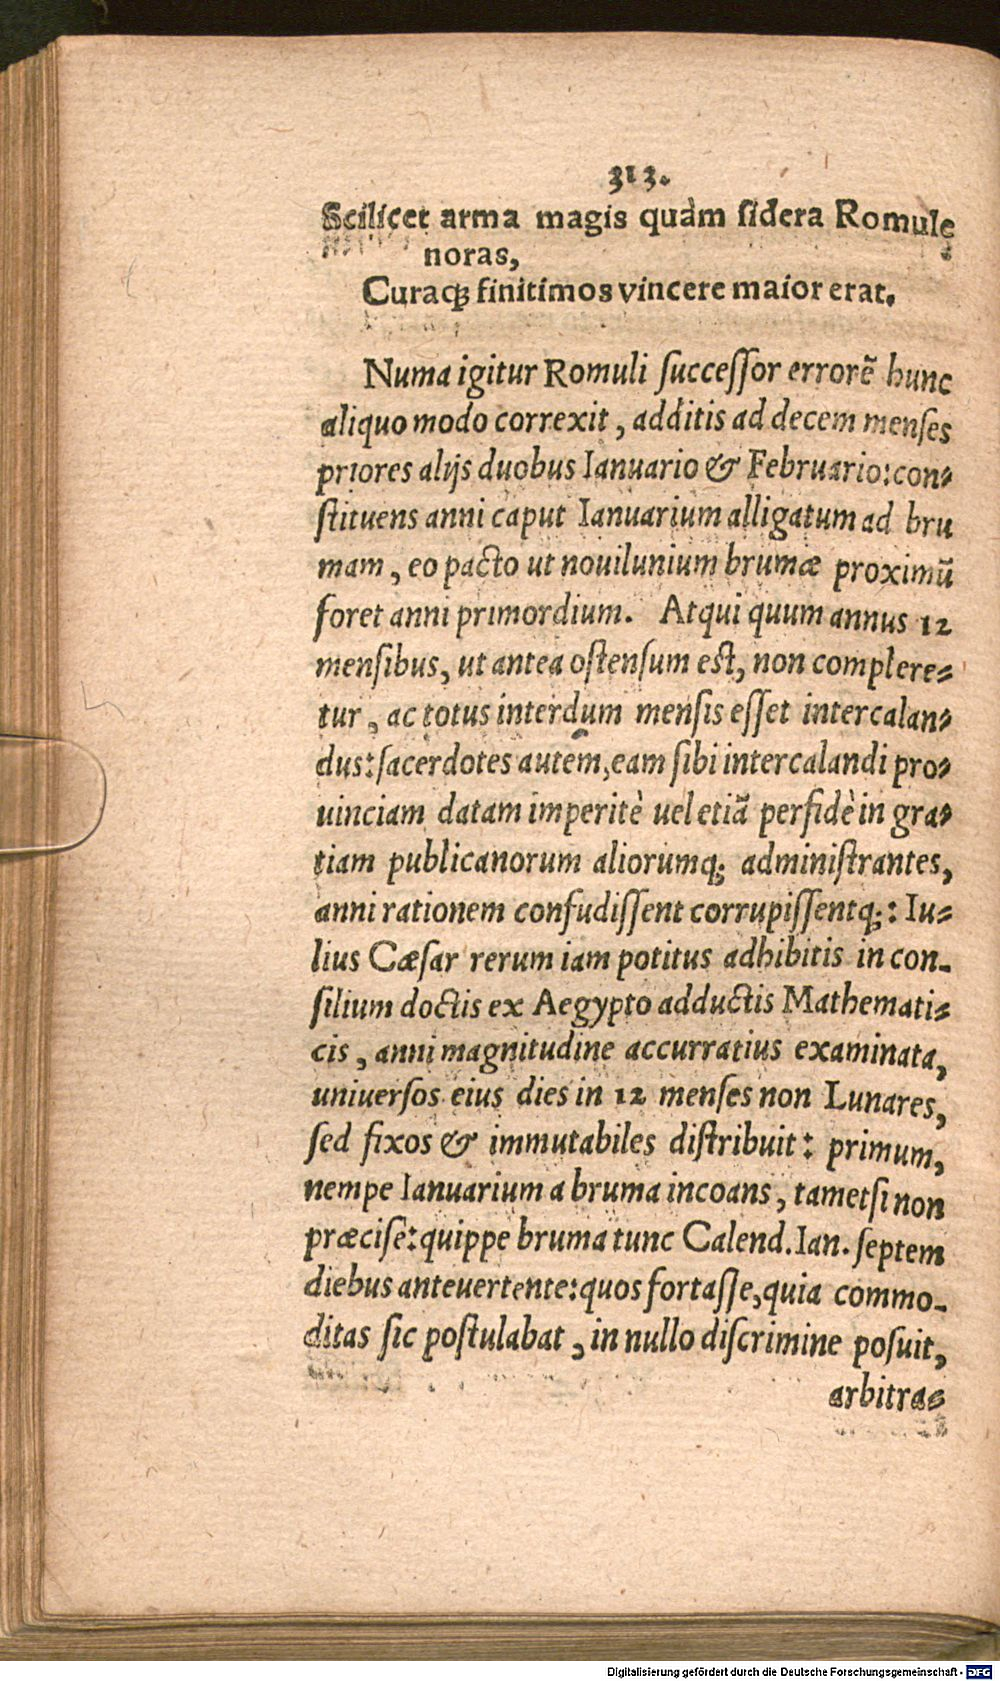 313.
Scilicet arma magis quàm sidera Romule
noras,
Curaq́; finitimos vincere maior erat.
Numa igitur Romuli successor errorẽ hunc
aliquo modo correxit, additis ad decem menses
priores alijs duobus Ianuario & Februario: con-
stituens anni caput Ianuarium alligatum ad bru
mam, eo pacto ut nouilunium brumæ proximũ
foret anni primordium. Atqui quum annus 12
mensibus, ut antea ostensum est, non complere-
tur, ac totus interdum mensis esset intercalan-
dus: sacerdotes autem, eam sibi intercalandi pro-
uinciam datam imperitè uel etiã perfidè in gra-
tiam publicanorum aliorumq; administrantes,
anni rationem confudissent corrupissentq;: Iu-
lius Cæsar rerum iam potitus adhibitis in con-
silium doctis ex Aegypto adductis Mathemati-
cis, anni magnitudine accurratius examinata,
universos eius dies in 12 menses non Lunares,
sed fixos & immutabiles distribuit: primum,
nempe Ianuarium a bruma incoans, tametsi non
præcise: quippe bruma tunc Calend. Ian. septem
diebus anteuertente: quos fortasse, quia commo-
ditas sic postulabat, in nullo discrimine posuit,
arbitra-
Digitalisierung gefördert durch die Deutsche Forschungsgemeinschaft - DFG